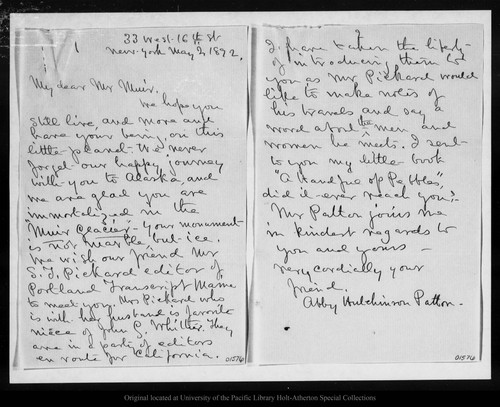 33 West-16th St
1
New-York May 2, 1892.
My dear Mr Muir.
We hope you
still live, and move and
have your being, on this
little planet. We never
forget our happy journey
with you to Alaska, and
we are glad you are
immortalized in the
"Muir Glacier" - Your monument
is not marble, but ice.
We wish our friend Mr
S. T. Pickard editor of
Portland Transcript Maine
to meet you. Mrs Pickard who
is with her husband is favorite
niece of John G. Whittier. They
are in a party of editors
en route for California.
01576
2
I have taken the liberty
of introducing them to
you as Mr Pickard would
like to make notes of
his travels and say a
word about the men and
women he meets. I sent
to you my little book
"A handful of Pebbles",
did it ever reach you?
Mr Patton joins me
in kindest regards to
you and yours -
very cordially your
friend.
Abby Hutchinson Patton -
01576
Original located at University of the Pacific Library Holt-Atherton Special Collections